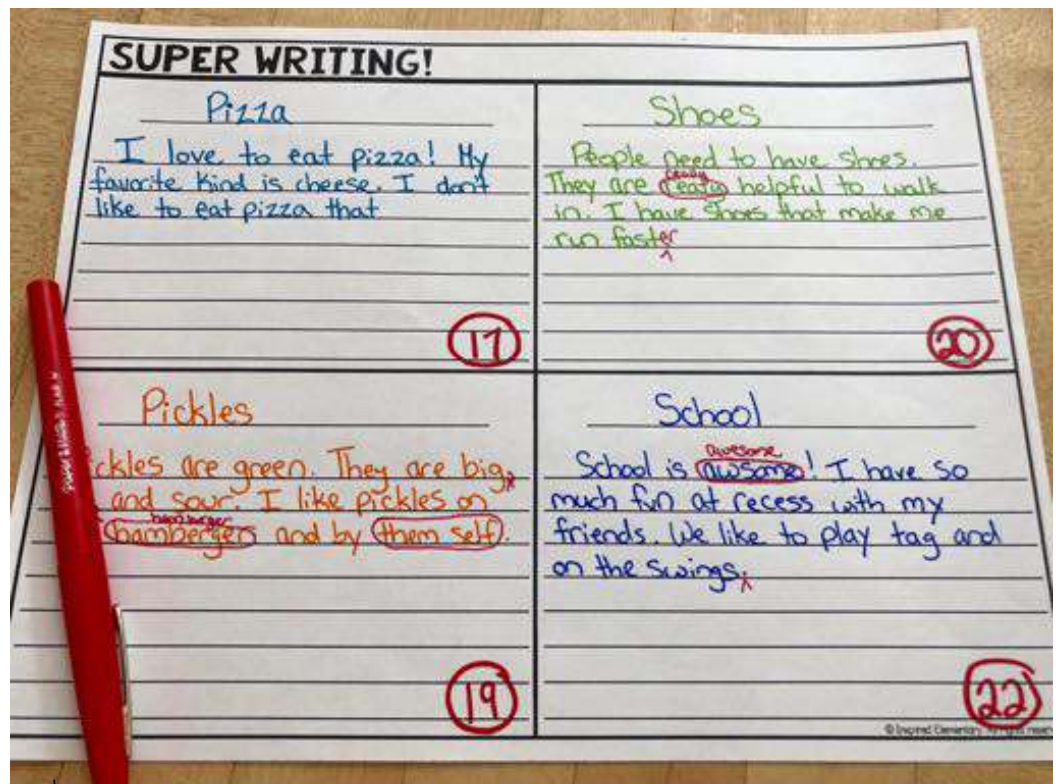 SUPER WRITING!
Pizza
I love to eat pizza! My
favorite kind is cheese. I don't
like to eat pizza that
17
Shoes
People need to have shoes.
They are helpful to walk
in. I have shoes that make me
run faster
20
Pickles
ckles are green. They are big,
and sour. I like pickles on
hamburger
hambergers and by them self.
19
School
awesome
School is awsome! I have so
much fun at recess with my
friends. We like to play tag and
on the swings.
22
© Inspired Elementary. All rights reser